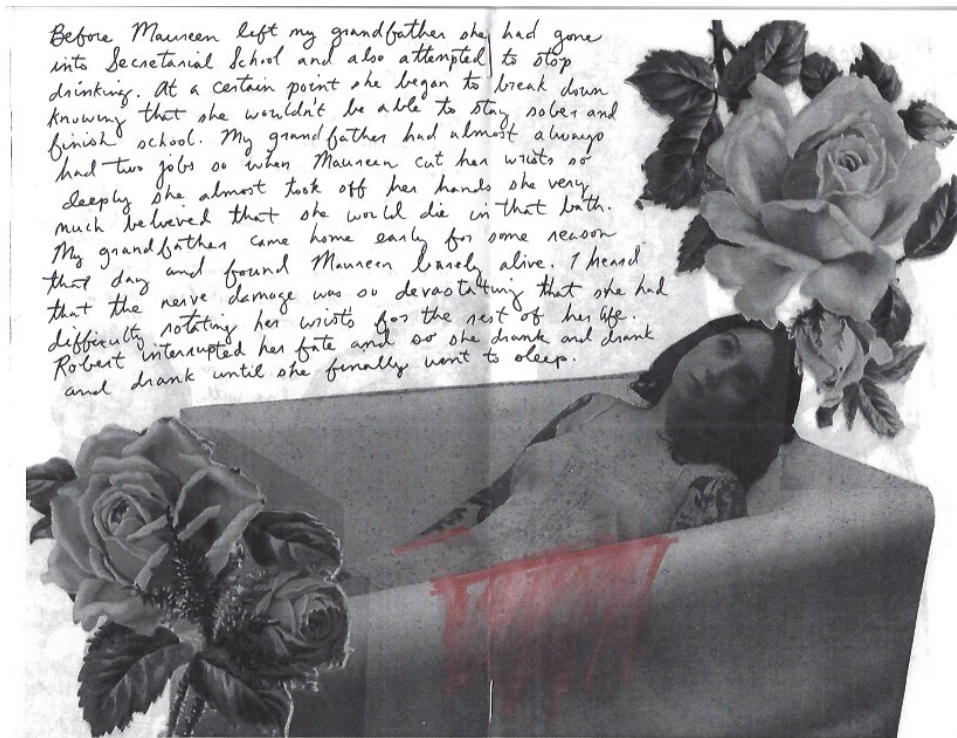 Before Maureen left my grandfather she had gone
into Secretarial School and also attempted to stop
drinking. At a certain point she began to break down
knowing that she wouldn't be able to stay sober and
finish school. My grandfather had almost always
had two jobs so when Maureen cut her wrists so
deeply she almost took off her hands she very
much believed that she would die in that bath.
My grandfather came home early for some reason
that day and found Maureen barely alive. I heard
that the nerve damage was so devastating that she had
difficulty rotating her wrists for the rest of her life.
Robert interrupted her fate and so she drank and drank
and drank until she finally went to sleep.